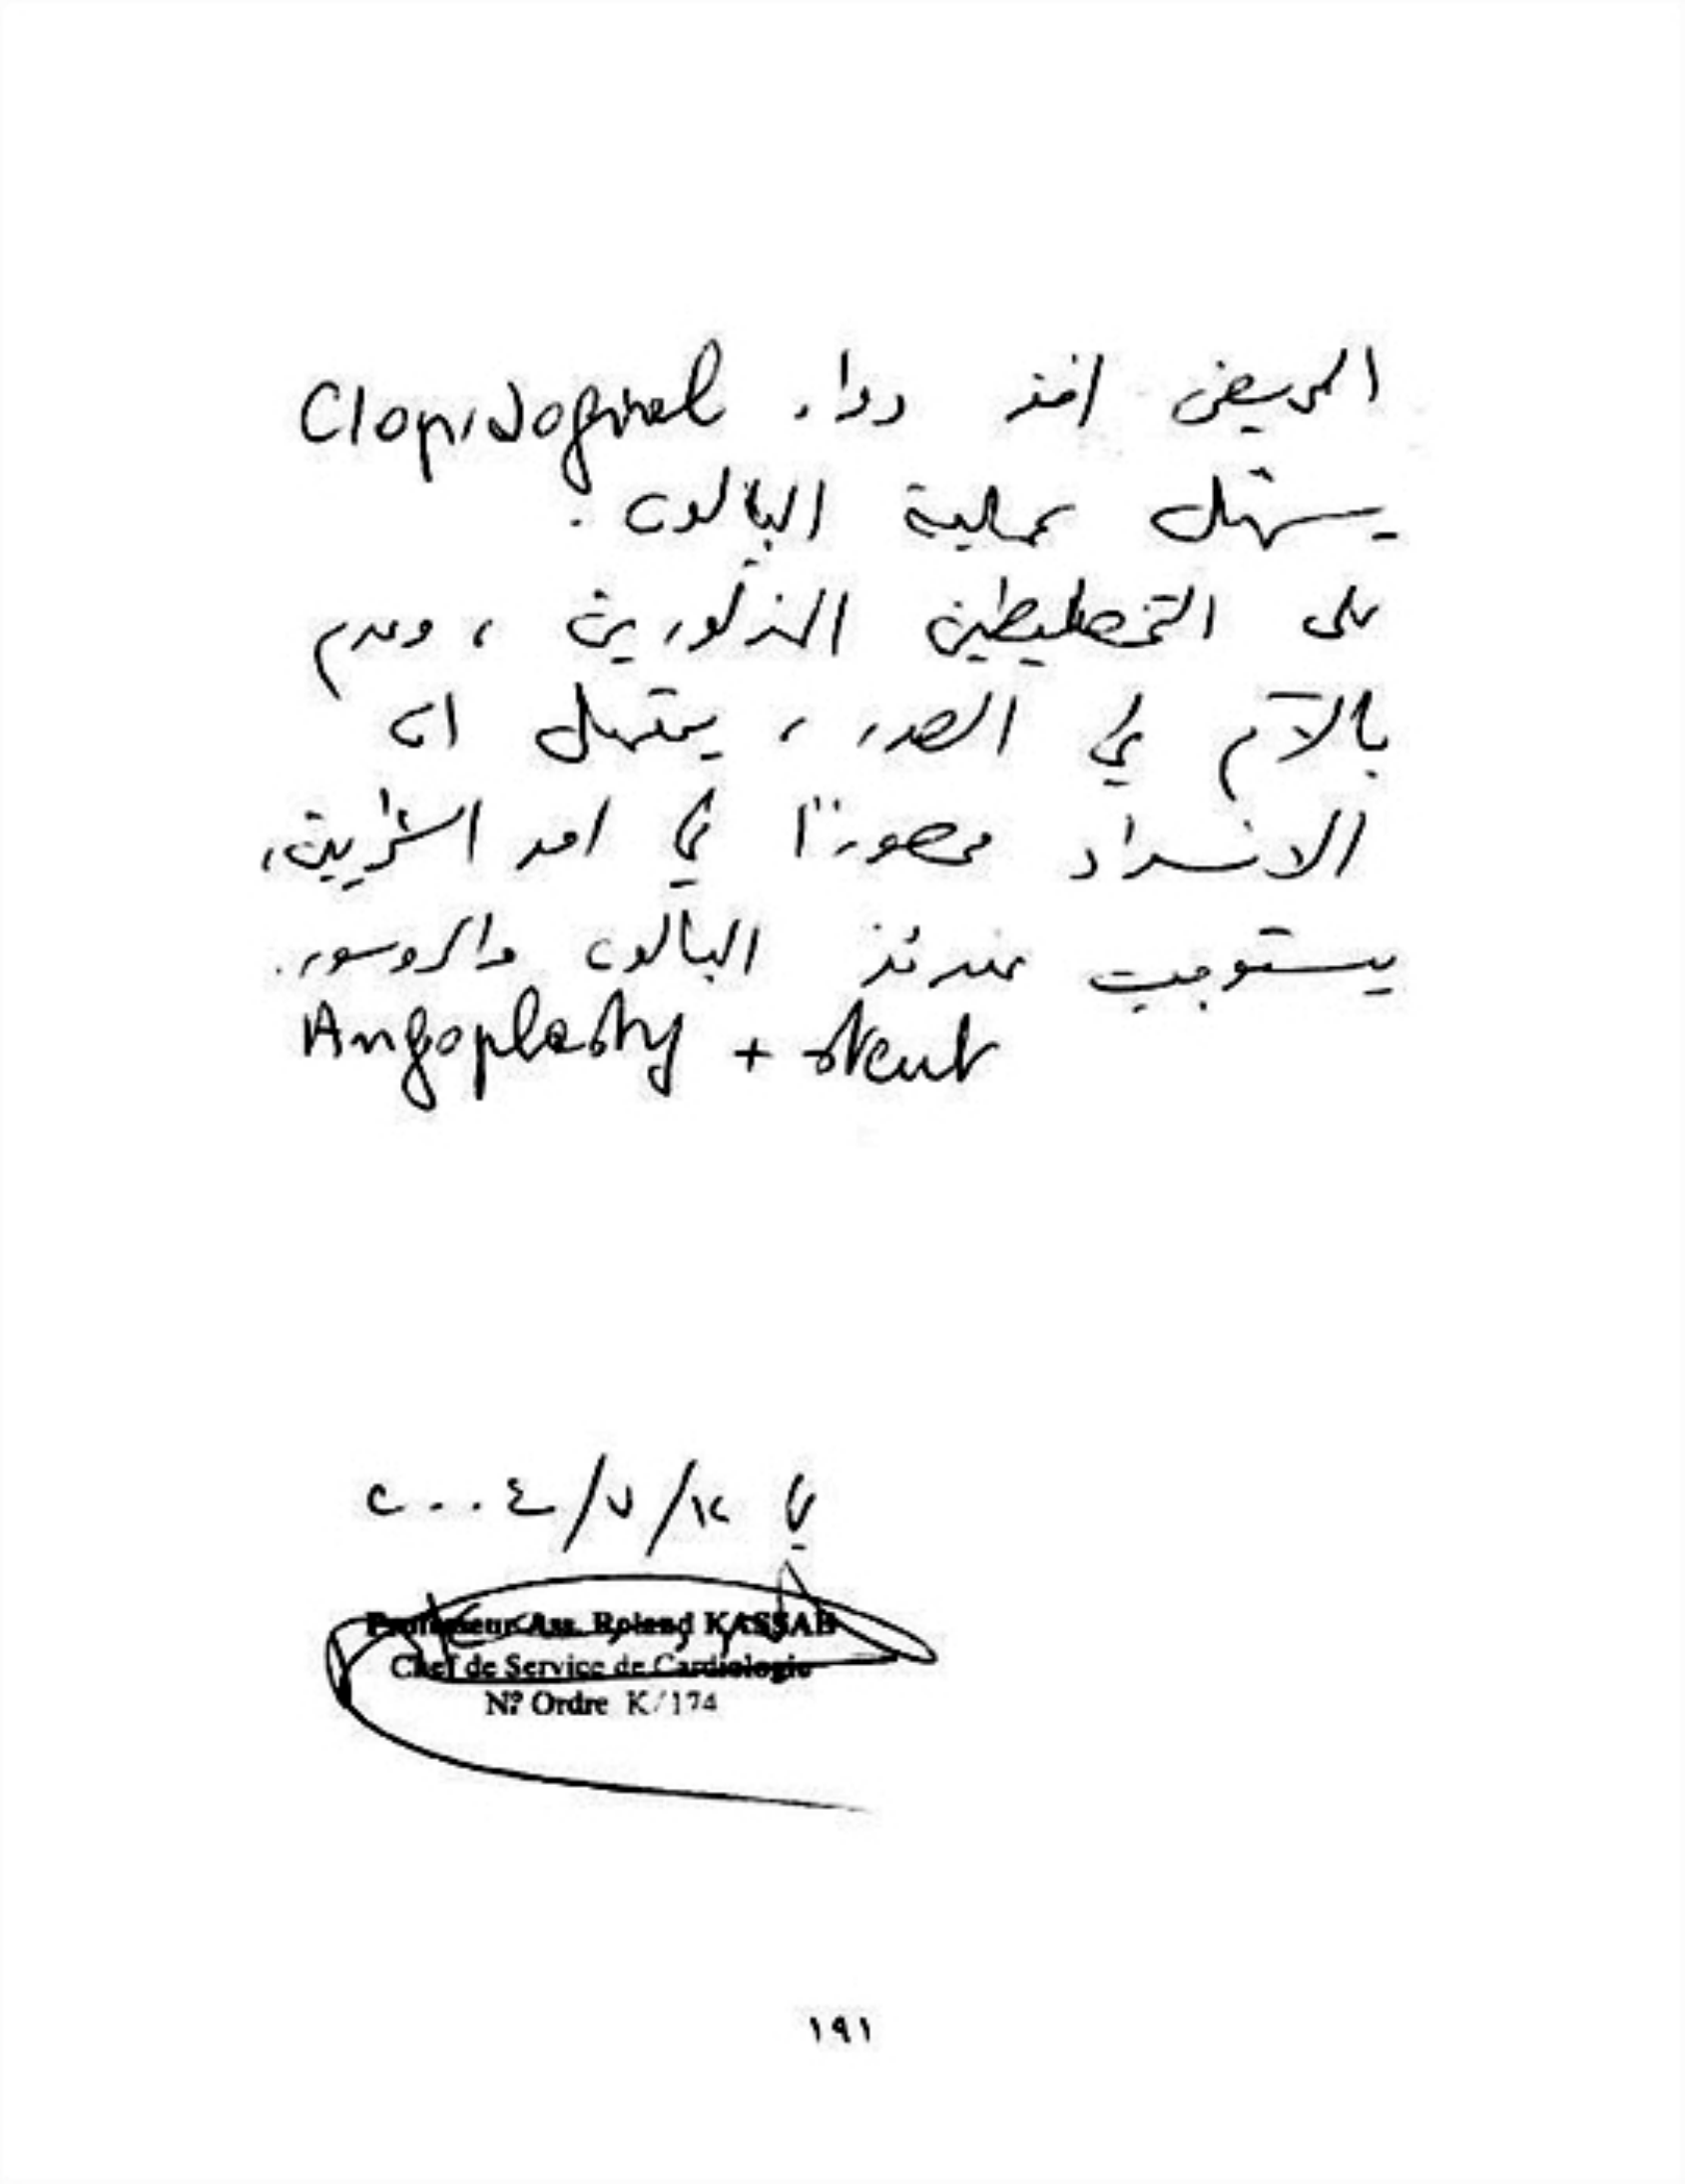 المريض اخذ دواء Clopidogrel
يسهل عملية البالون.
على التخطيطين المذكورين، وعدم
بالآم في الصدر، يحتمل ان
الانسداد محصورًا في احد الشرايين،
يستوجب عندئذ البالون والروسور.
Angoplasty + stent
في ١٢/٧/٢٠٠٤
Professeur Ass. Roland KASSAB
Chef de Service de Cardiologie
Nº Ordre K/174
١٩١